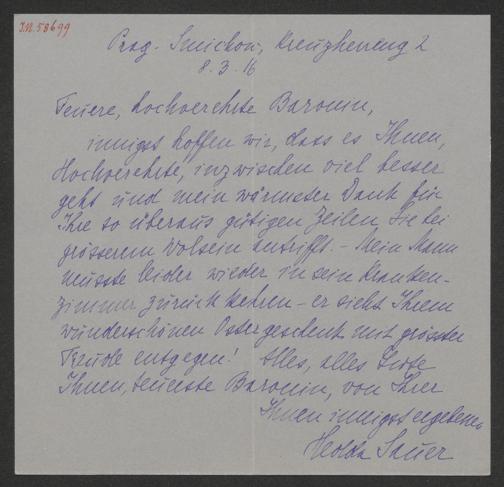 I.N. 58699
Prag-Smichow, Kreuzherreng 2
8. 3. 16
Teuere, hochverehrte Baronin,
innigst hoffen wir, dass es Ihnen,
Hochverehrte, inzwischen viel besser
geht und mein wärmster Dank für
Ihre so überaus gütigen Zeilen Sie bei
grösserem Wolsein antrifft. – Mein Mann
musste leider wieder in sein Kranken-
zimmer zurück kehren – er sieht Ihrem
wunderschönen Ostergeschenk mit grösster
Freude entgegen! Alles, alles Gute
Ihnen, teuerste Baronin, von Ihrer
Ihnen innigst ergebenen
Hedda Sauer